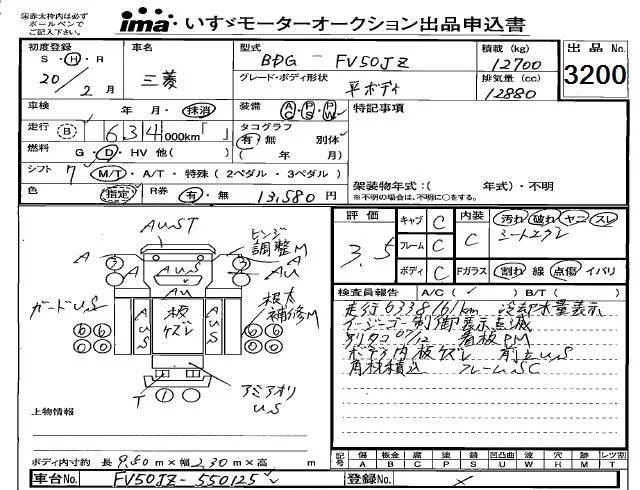 ※赤太枠内は必ず
ボールペンで
ご記入下さい。
ima いすゞモーターオークション出品申込書
初度登録
S・H・R
20 / 2月
車名
三菱
型式
BDG - FV50JZ
グレード・ボディ形状
平ボディ
積載 (kg)
12700
排気量 (cc)
12880
出品 No.
3200
車検
年 月・抹消
装備
AC・PS・PW
特記事項
走行 B 634000km「 」
タコグラフ
有・無 別体
( 年 月)
燃料 G・D・HV 他( )
シフト 7 M/T・A/T・特殊 ( 2ペダル・3ペダル )
色 指定 R券 有・無 13,580 円
架装物年式:( 年式)・不明
※不明の場合は、不明に○をする。
評価
3.5
キャブ C
フレーム C
ボディ C
内装
C
汚れ 破れ ヤニ スレ
シートコゲレ
Fガラス 割れ 線 点傷 イバリ
検査員報告 A/C( ✓ ) B/T( )
走行633816/km 冷却水量表示
イージーゴー制御表示点滅
別タコ07/12 看板PM
ボデー内板ズレ 前立US
角材積込 フレームSC
AUST
ヒンジ
調整M
A
A
3
3
AUS
AU
ガードUS
AUS
板
ズレ
AUS
根太
補修M
6 6
6 6
T
1
アミアオリ
US
上物情報
ボディ内寸約 長 9.60 m×幅 2.30 m×高 m
車台No. FV50JZ-550125
登録No.
記号
傷 板金 腐 塗 錆 凹凸曲 波 穴 跡 レツ割
A B C P S U W H M T